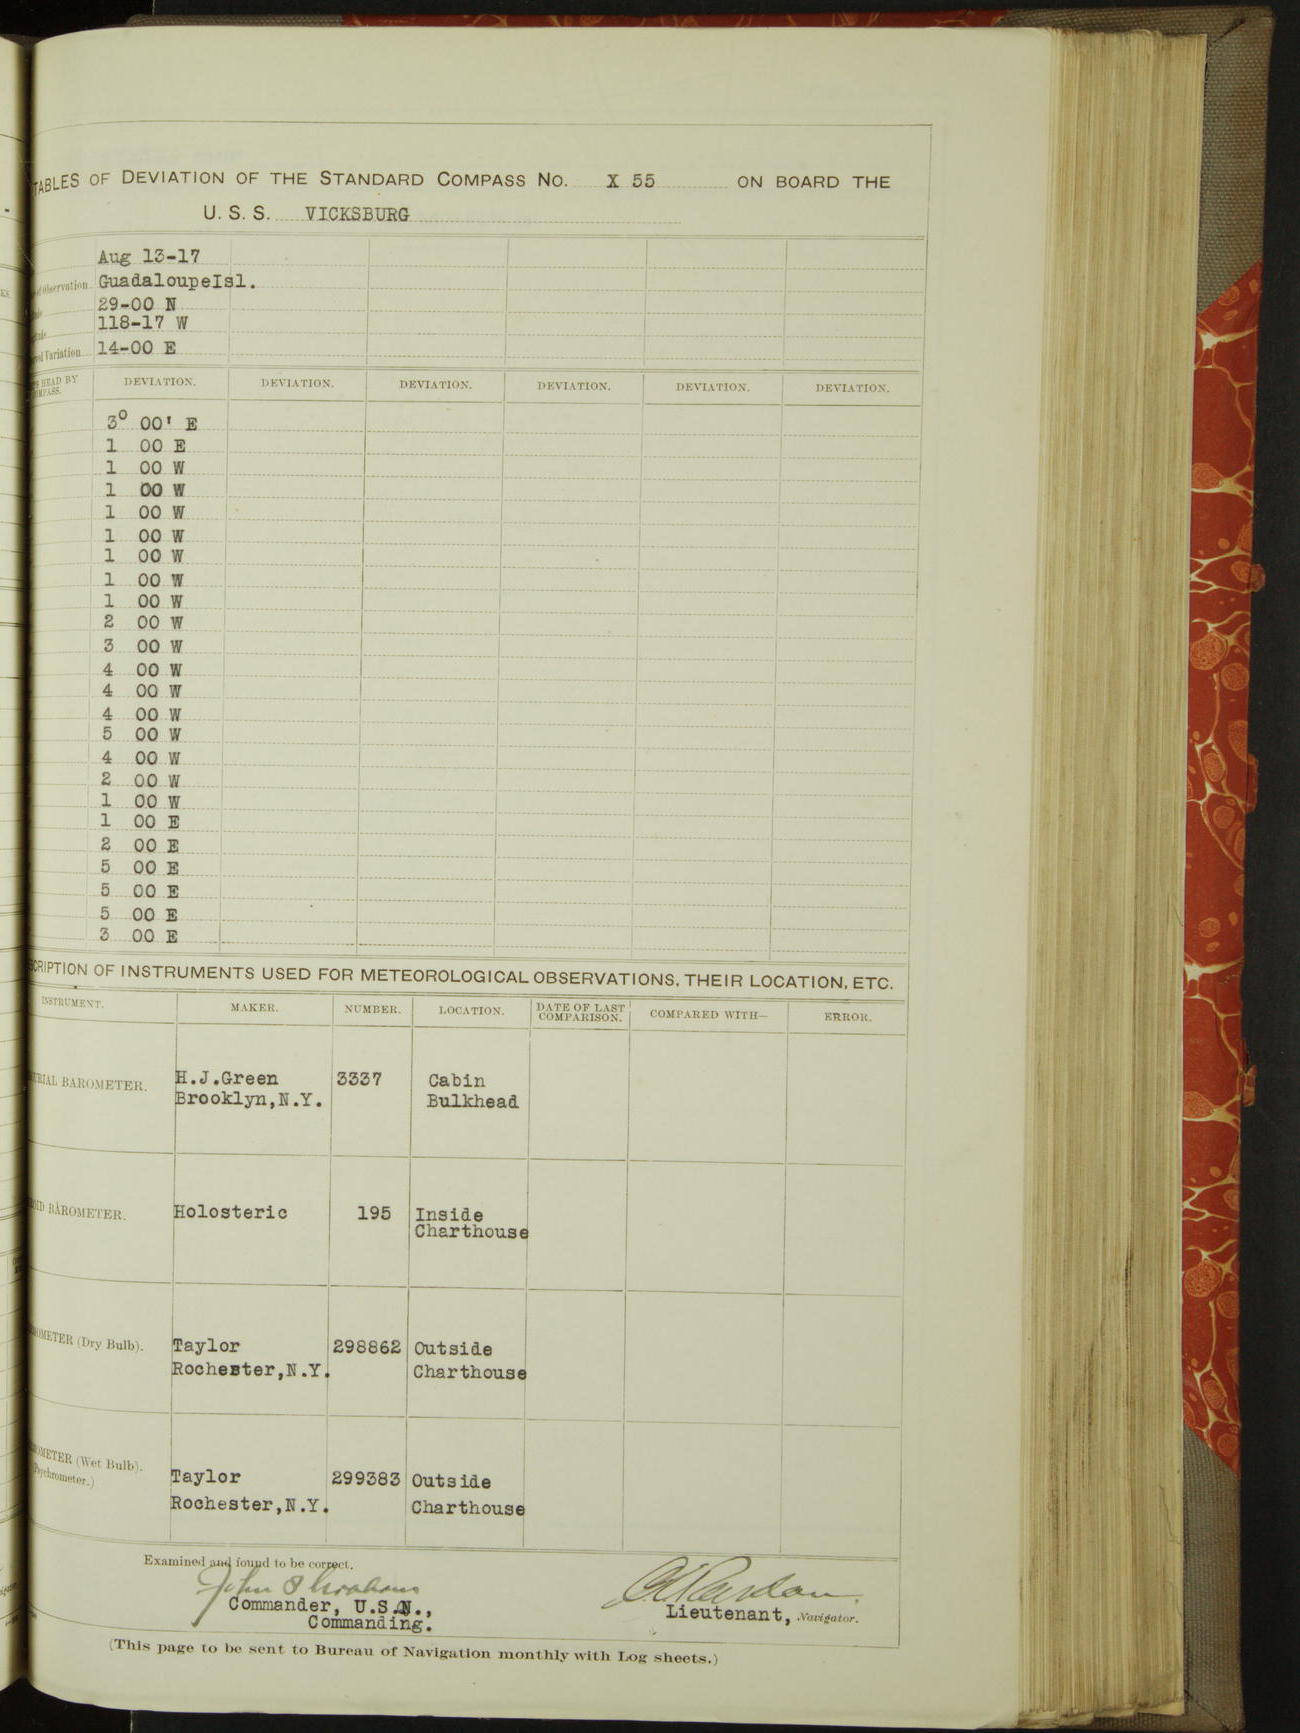 TABLES OF DEVIATION OF THE STANDARD COMPASS No. X 55 ON BOARD THE
U. S. S. VICKSBURG
Aug 13-17
Observation GuadaloupeIsl.
29-00 N
118-17 W
Variation 14-00 E
HEAD BY DEVIATION. DEVIATION. DEVIATION. DEVIATION. DEVIATION. DEVIATION.
3° 00' E
1 00 E
1 00 W
1 00 W
1 00 W
1 00 W
1 00 W
1 00 W
1 00 W
2 00 W
3 00 W
4 00 W
4 00 W
4 00 W
5 00 W
4 00 W
2 00 W
1 00 W
1 00 E
2 00 E
5 00 E
5 00 E
5 00 E
3 00 E
OF INSTRUMENTS USED FOR METEOROLOGICAL OBSERVATIONS, THEIR LOCATION, ETC.
INSTRUMENT. MAKER. NUMBER. LOCATION. DATE OF LAST COMPARISON. COMPARED WITH— ERROR.
BAROMETER. H.J.Green 3337 Cabin
Brooklyn,N.Y. Bulkhead
BAROMETER. Holosteric 195 Inside
Charthouse
(Dry Bulb). Taylor 298862 Outside
Rochester,N.Y. Charthouse
(Wet Bulb).
Taylor 299383 Outside
Rochester,N.Y. Charthouse
Examined and found to be correct.
John
Commander, U.S.N., Lieutenant, Navigator.
Commanding.
(This page to be sent to Bureau of Navigation monthly with Log sheets.)